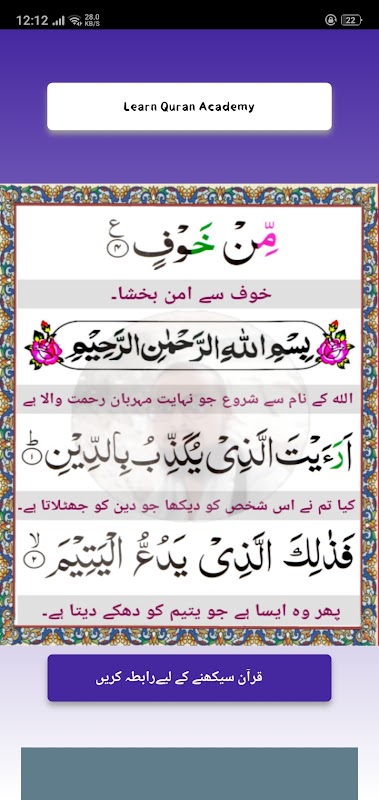 12:12 28.0 KB/S 22
Learn Quran Academy
مِّنْ خَوْفٍ ﴿۴﴾ ع
خوف سے امن بخشا۔
بِسْمِ اللهِ الرَّحْمٰنِ الرَّحِيْمِ
الله کے نام سے شروع جو نہایت مہربان رحمت والا ہے
اَرَءَيْتَ الَّذِىْ يُكَذِّبُ بِالدِّيْنِ ﴿۱﴾ ؕ
کیا تم نے اس شخص کو دیکھا جو دین کو جھٹلاتا ہے۔
فَذٰلِكَ الَّذِىْ يَدُعُّ الْيَتِيْمَ ﴿۲﴾ ۙ
پھر وہ ایسا ہے جو یتیم کو دھکے دیتا ہے۔
قرآن سیکھنے کے لیےرابطہ کریں